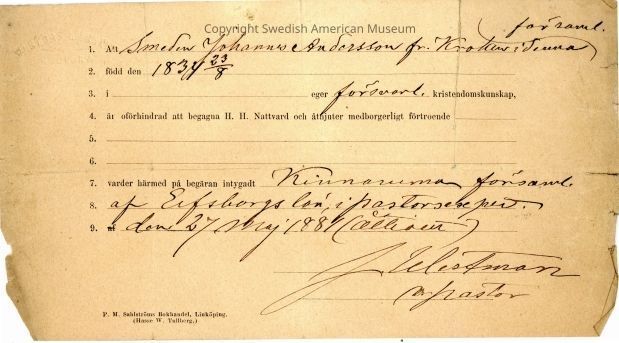 Copyright Swedish American Museum
församl.
1. Att Smeden Johannes Andersson fr. Krokten i denna
2. född den 1834 23/8
3. i eger försvarl. kristendomskunskap,
4. är oförhindrad att begagna H. H. Nattvard och åtnjuter medborgerligt förtroende
5.
6.
7. varder härmed på begäran intygadt Kinnarumma församl.
8. af Elfsborgs län, i pastorsexped.
9. af den 27 Maj 1881 (åttioen)
J Westman
v. pastor
P. M. Sahlströms Bokhandel, Linköping.
(Hasse W. Tullberg.)